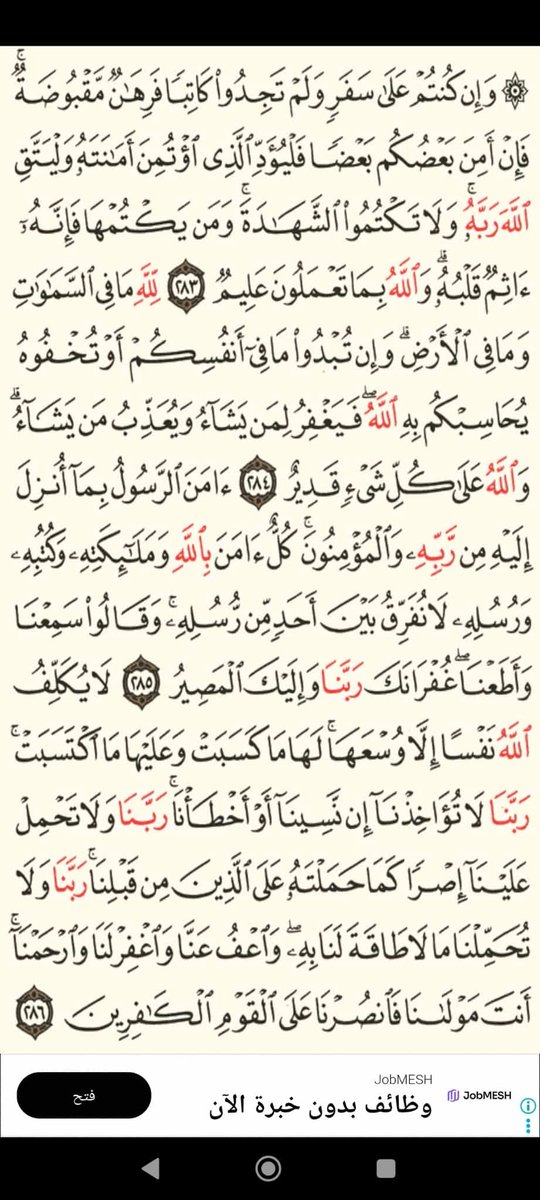 ۞ وَإِن كُنتُمْ عَلَىٰ سَفَرٍ وَلَمْ تَجِدُوا۟ كَاتِبًا فَرِهَـٰنٌ مَّقْبُوضَةٌ ۖ
فَإِنْ أَمِنَ بَعْضُكُم بَعْضًا فَلْيُؤَدِّ ٱلَّذِى ٱؤْتُمِنَ أَمَـٰنَتَهُۥ وَلْيَتَّقِ
ٱللَّهَ رَبَّهُۥ ۗ وَلَا تَكْتُمُوا۟ ٱلشَّهَـٰدَةَ ۚ وَمَن يَكْتُمْهَا فَإِنَّهُۥٓ
ءَاثِمٌ قَلْبُهُۥ ۗ وَٱللَّهُ بِمَا تَعْمَلُونَ عَلِيمٌ ٢٨٣ لِّلَّهِ مَا فِى ٱلسَّمَـٰوَٰتِ
وَمَا فِى ٱلْأَرْضِ ۗ وَإِن تُبْدُوا۟ مَا فِىٓ أَنفُسِكُمْ أَوْ تُخْفُوهُ
يُحَاسِبْكُم بِهِ ٱللَّهُ ۖ فَيَغْفِرُ لِمَن يَشَآءُ وَيُعَذِّبُ مَن يَشَآءُ ۗ
وَٱللَّهُ عَلَىٰ كُلِّ شَىْءٍ قَدِيرٌ ٢٨٤ ءَامَنَ ٱلرَّسُولُ بِمَآ أُنزِلَ
إِلَيْهِ مِن رَّبِّهِۦ وَٱلْمُؤْمِنُونَ ۚ كُلٌّ ءَامَنَ بِٱللَّهِ وَمَلَـٰٓئِكَتِهِۦ وَكُتُبِهِۦ
وَرُسُلِهِۦ لَا نُفَرِّقُ بَيْنَ أَحَدٍ مِّن رُّسُلِهِۦ ۚ وَقَالُوا۟ سَمِعْنَا
وَأَطَعْنَا ۖ غُفْرَانَكَ رَبَّنَا وَإِلَيْكَ ٱلْمَصِيرُ ٢٨٥ لَا يُكَلِّفُ
ٱللَّهُ نَفْسًا إِلَّا وُسْعَهَا ۚ لَهَا مَا كَسَبَتْ وَعَلَيْهَا مَا ٱكْتَسَبَتْ ۗ
رَبَّنَا لَا تُؤَاخِذْنَآ إِن نَّسِينَآ أَوْ أَخْطَأْنَا ۚ رَبَّنَا وَلَا تَحْمِلْ
عَلَيْنَآ إِصْرًا كَمَا حَمَلْتَهُۥ عَلَى ٱلَّذِينَ مِن قَبْلِنَا ۚ رَبَّنَا وَلَا
تُحَمِّلْنَا مَا لَا طَاقَةَ لَنَا بِهِۦ ۖ وَٱعْفُ عَنَّا وَٱغْفِرْ لَنَا وَٱرْحَمْنَآ ۚ
أَنتَ مَوْلَىٰنَا فَٱنصُرْنَا عَلَى ٱلْقَوْمِ ٱلْكَـٰفِرِينَ ٢٨٦
JobMESH
JobMESH
وظائف بدون خبرة الآن
فتح